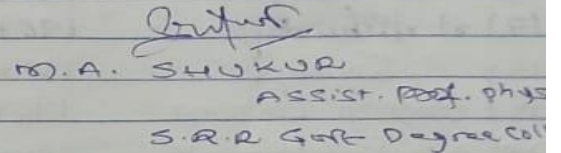 M.A. SHUKUR
Assist. Prof. phys
S.R.R Govt Degree Coll